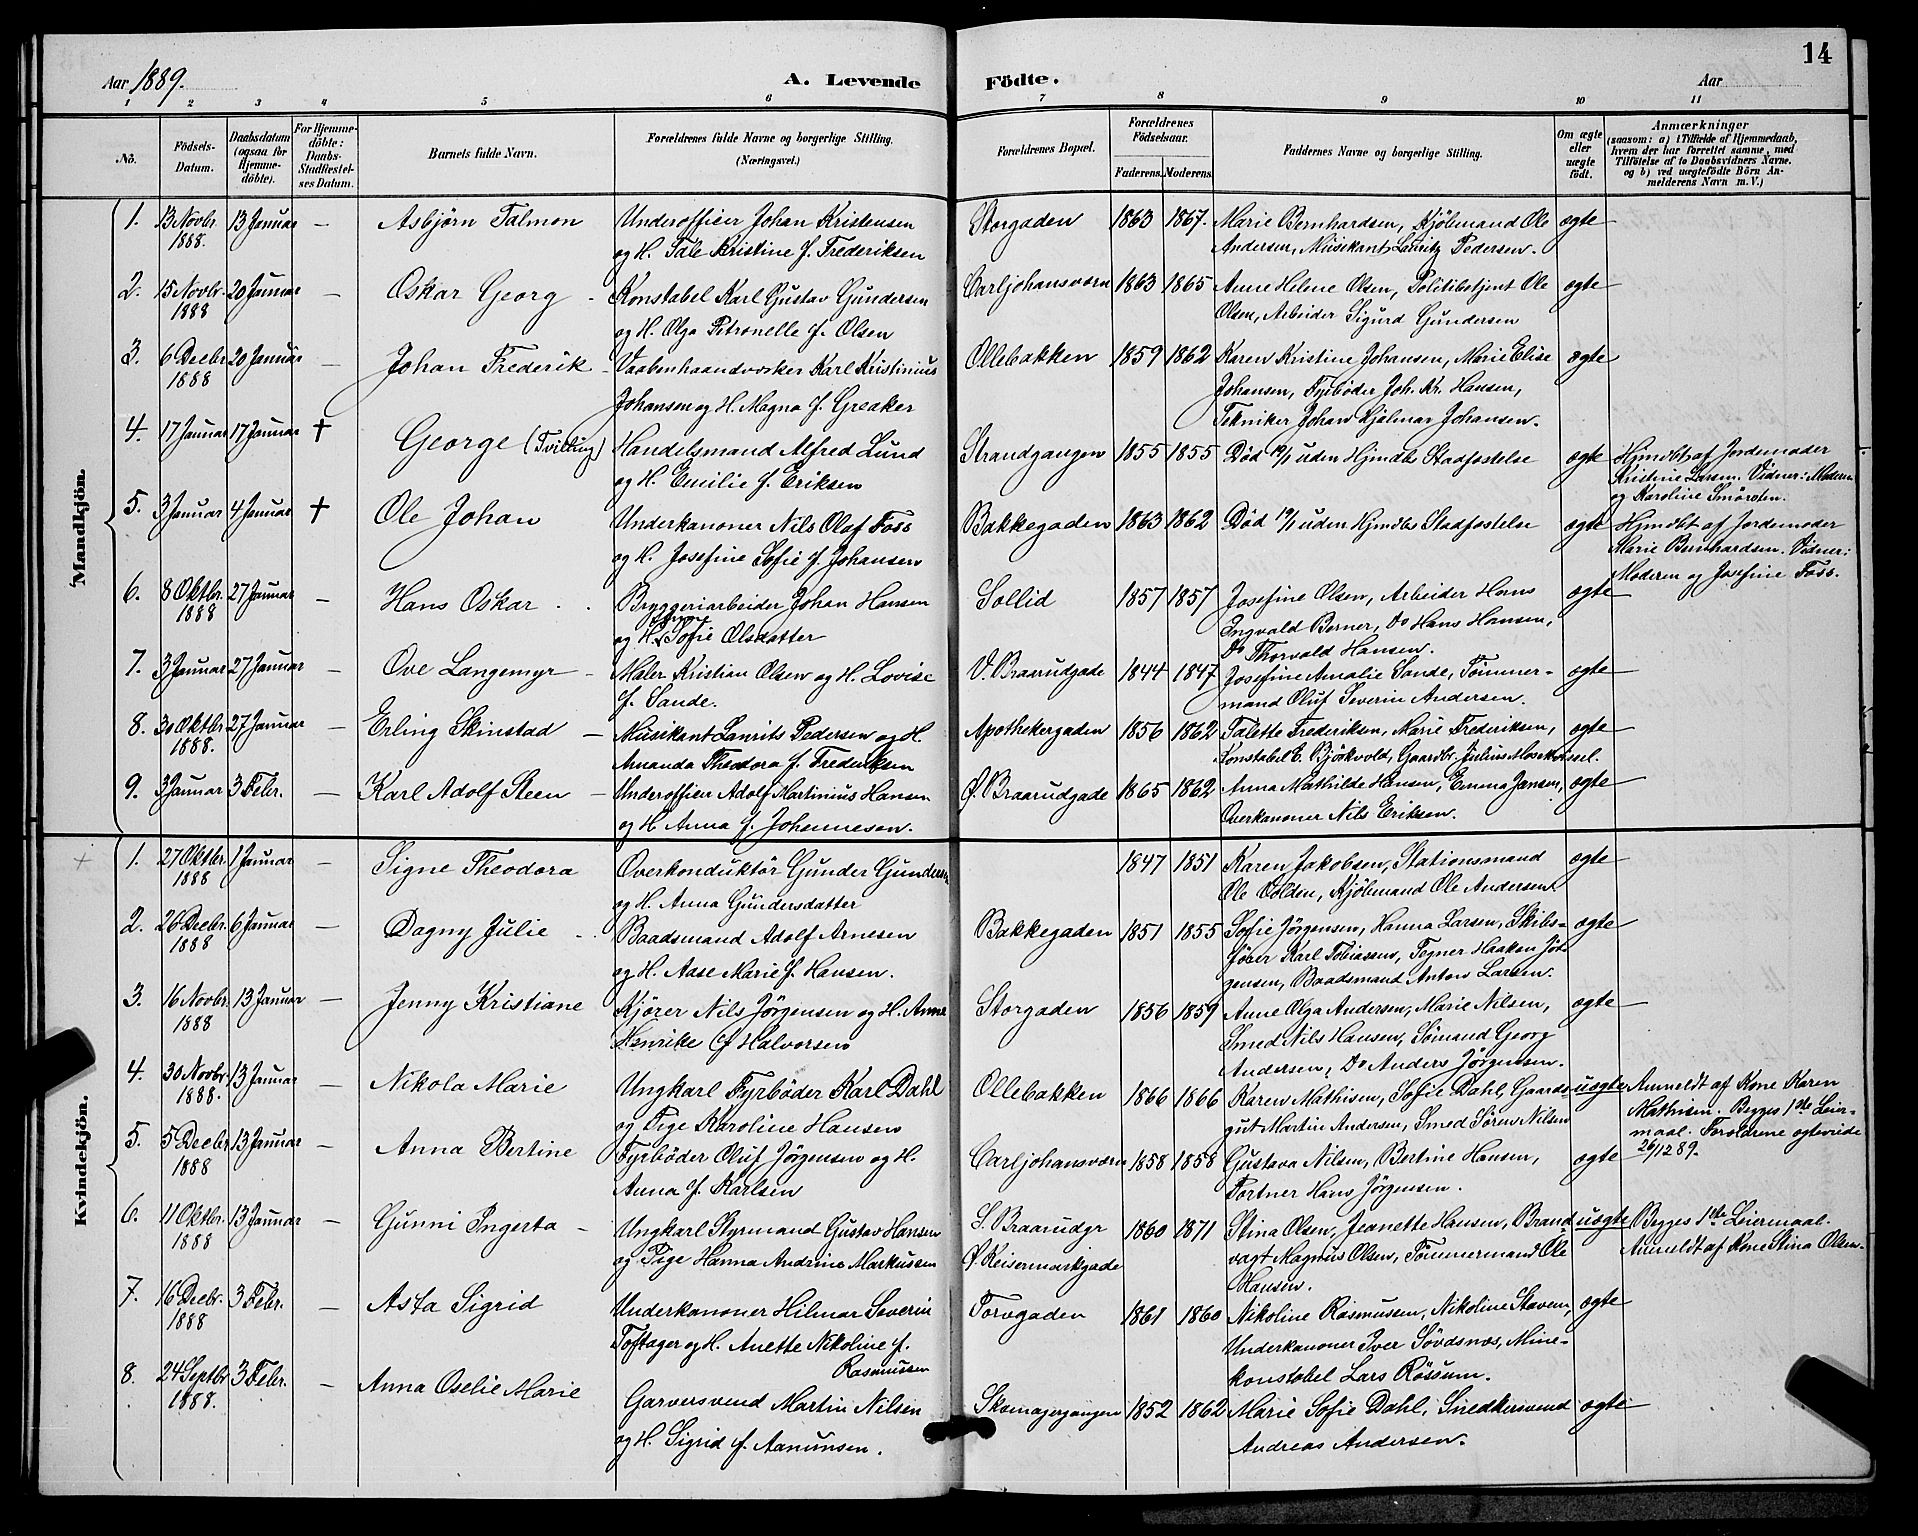 14
Aar 1889.
A. Levende Födte.
Aar
1 2 3 4 5 6 7 8 9 10 11
No.
Födsels-Datum.
Daabsdatum (ogsaa for Hjemme-döbte).
For Hjemme-döbte: Daabs-Stadfæstel-ses Datum.
Barnets fulde Navn.
Forældrenes fulde Navne og borgerlige Stilling. (Næringsvei.)
Forældrenes Bopæl.
Forældrenes Födselsaar.
Faderens. Moderens.
Faddernes Navne og borgerlige Stilling.
Om ægte eller uægte födt.
Anmærkninger
(saasom: a) i Tilfælde af Hjemmedaab, hvem der har forrettet samme, med Tilföielse af to Daabsvidners Navne. og b) ved uægtefödte Börn An-melderens Navn m. V.)
Mandkjön.
1. 13 Novbr. 1888. 13 Januar — Asbjörn Talmon
Underofficer Johan Kristensen
og H. Tale Kristine f. Frederiksen
Storgaden 1863 1867. Marie Bernhardsen, Kjölemand Ole
Andersen, Musikant Lauritz Pedersen. ægte
2. 15 Novbr. 1888 20 Januar — Oskar Georg
Konstabel Karl Gustav Gundersen
og H. Olga Petronelle f. Olsen
Carljohansværn 1863 1865 Anne Helene Olsen, Politibetjent Ole
Olsen, Arbeider Sigurd Gundersen ægte
3. 6 Decbr 1888 20 Januar — Johan Frederik
Vaabenhaandværker Karl Kristinius
Johansen og H. Magna f. Greaker
Ollebakken 1859 1862 Karen Kristine Johansen, Marie Elise
Johansen, Fyrböder Joh. Kr. Hansen,
Tekniker Johan Hjalmar Johansen. ægte
4. 17 Januar 17 Januar † George (Tvilling)
Handelsmand Alfred Lund
og H. Emilie f. Eriksen
Strandgangen 1855 1855 Död 19/1 uden Hjmdbs Stadfæstelse ægte
Hjmdbt af Jordemoder
Kristine Larsen. Vidner: Moderen
og Karoline Smörsten.
5. 3 Januar 4 Januar † Ole Johan
Underkanoner Nils Olaf Foss
og H. Josefine Sofie f. Johansen
Bakkegaden 1863 1862 Död 19/1 uden Hjmdbs Stadfæstelse ægte
Hjmdbt af Jordemoder
Marie Bernhardsen. Vidner:
Moderen og Josefine Foss.
6. 8 Oktbr. 1888 27 Januar — Hans Oskar
Bryggeriarbeider Johan Hansen
og H. Sofie Olsdatter
Sollid 1857 1857 Josefine Olsen, Arbeider Hans
Ingvald Berner, Do Hans Hansen,
Do Thorvald Hansen. ægte
7. 3 Januar 27 Januar — Ove Langemyr
Maler Kristian Olsen og H. Lovise
f. Sande.
V. Braarudgade 1844 1847 Josefine Amalie Sande, Tömmer-
mand Oluf Severin Andersen. ægte
8. 30 Oktbr. 1888. 27 Januar — Erling Skinstad
Musikant Laurits Pedersen og H.
Amanda Theodora f. Frederiksen
Apothekergaden 1856 1862 Talette Frederiksen, Marie Frederiksen,
Konstabel E. Björkvold, Gaardbr. Julius Moskvæsel. ægte
9. 3 Januar 3 Febr. — Karl Adolf Steen
Underofficer Adolf Martinius Hansen
og H. Anna f. Johannesen.
Ø. Braarudgade 1865 1862 Anna Mathilde Hansen, Emma Jansen,
Overkanoner Nils Eriksen. ægte
Kvindekjön.
1. 27 Oktbr. 1888 1 Januar — Signe Theodora
Overkonduktör Gunder Gundersen
og H. Anna Gundersdatter
1847 1851 Karen Jakobsen, Stationsmand
Ole Volden, Kjölemand Ole Andersen ægte
2. 26 Decbr. 1888 6 Januar — Dagny Julie
Baadsmand Adolf Arnesen
og H. Aase Marie f. Hansen.
Bakkegaden 1851 1855 Sofie Jörgensen, Hanna Larsen, Skibs-
förer Karl Tobiassen, Tegner Haakon Jör-
gensen, Baadsmand Anton Larsen. ægte
3. 16 Novbr. 1888 13 Januar — Jenny Kristiane
Kjörer Nils Jörgensen og H. Anne
Henrike f Halvorsen
Storgaden 1856 1859 Anne Olga Andersen, Marie Nilsen,
Smed Nils Hansen, Sömand Georg
Andersen, Do Anders Jörgensen. ægte
4. 30 Novbr. 1888. 13 Januar — Nikola Marie
Ungkarl Fyrböder Karl Dahl
og Pige Karoline Hansen
Ollebakken 1866 1866 Karen Mathisen, Sofie Dahl, Gaards-
gut Martin Andersen, Smed Sören Nilsen uægte
Anmeldt af Kone Karen
Mathisen. Begges 1ste Leier-
maal. Forældrene ægteviede
26/12 89.
5. 5 Decbr 1888 13 Januar — Anna Bertine
Fyrböder Oluf Jörgensen og H.
Anna f. Karlsen
Carljohansværn 1858 1858 Gustava Nilsen, Bertine Hansen,
Portner Hans Jörgensen. ægte
6. 11 Oktbr. 1888 13 Januar — Gunni Ingerta
Ungkarl Styrmand Gustav Hansen
og Pige Hanna Andrine Markussen
S. Braarudgr
Ø. Keisermarkgade
1860 1871 Stina Olsen, Jeanette Hansen, Brand
vagt Magnus Olsen, Tömmermand Ole
Hansen. uægte
Begges 1ste Leiermaal.
Anmeldt af Kone Stina Olsen.
7. 16 Decbr. 1888 3 Febr. — Asta Sigrid
Underkanoner Hilmar Severin
Toftager og H. Anette Nikoline f.
Rasmussen
Torvgaden 1861 1860 Nikoline Rasmussen, Nikoline Stavem,
Underkanoner Iver Sövdsnæs, Mine-
konstabel Lars Rössum. ægte
8. 24 Septbr 1888. 3 Febr. — Anna Oselie Marie
Garversvend Martin Nilsen
og H. Sigrid f. Aanunsen.
Skomagergangen 1852 1862 Marie Sofie Dahl, Snedkersvend
Andreas Andersen. ægte